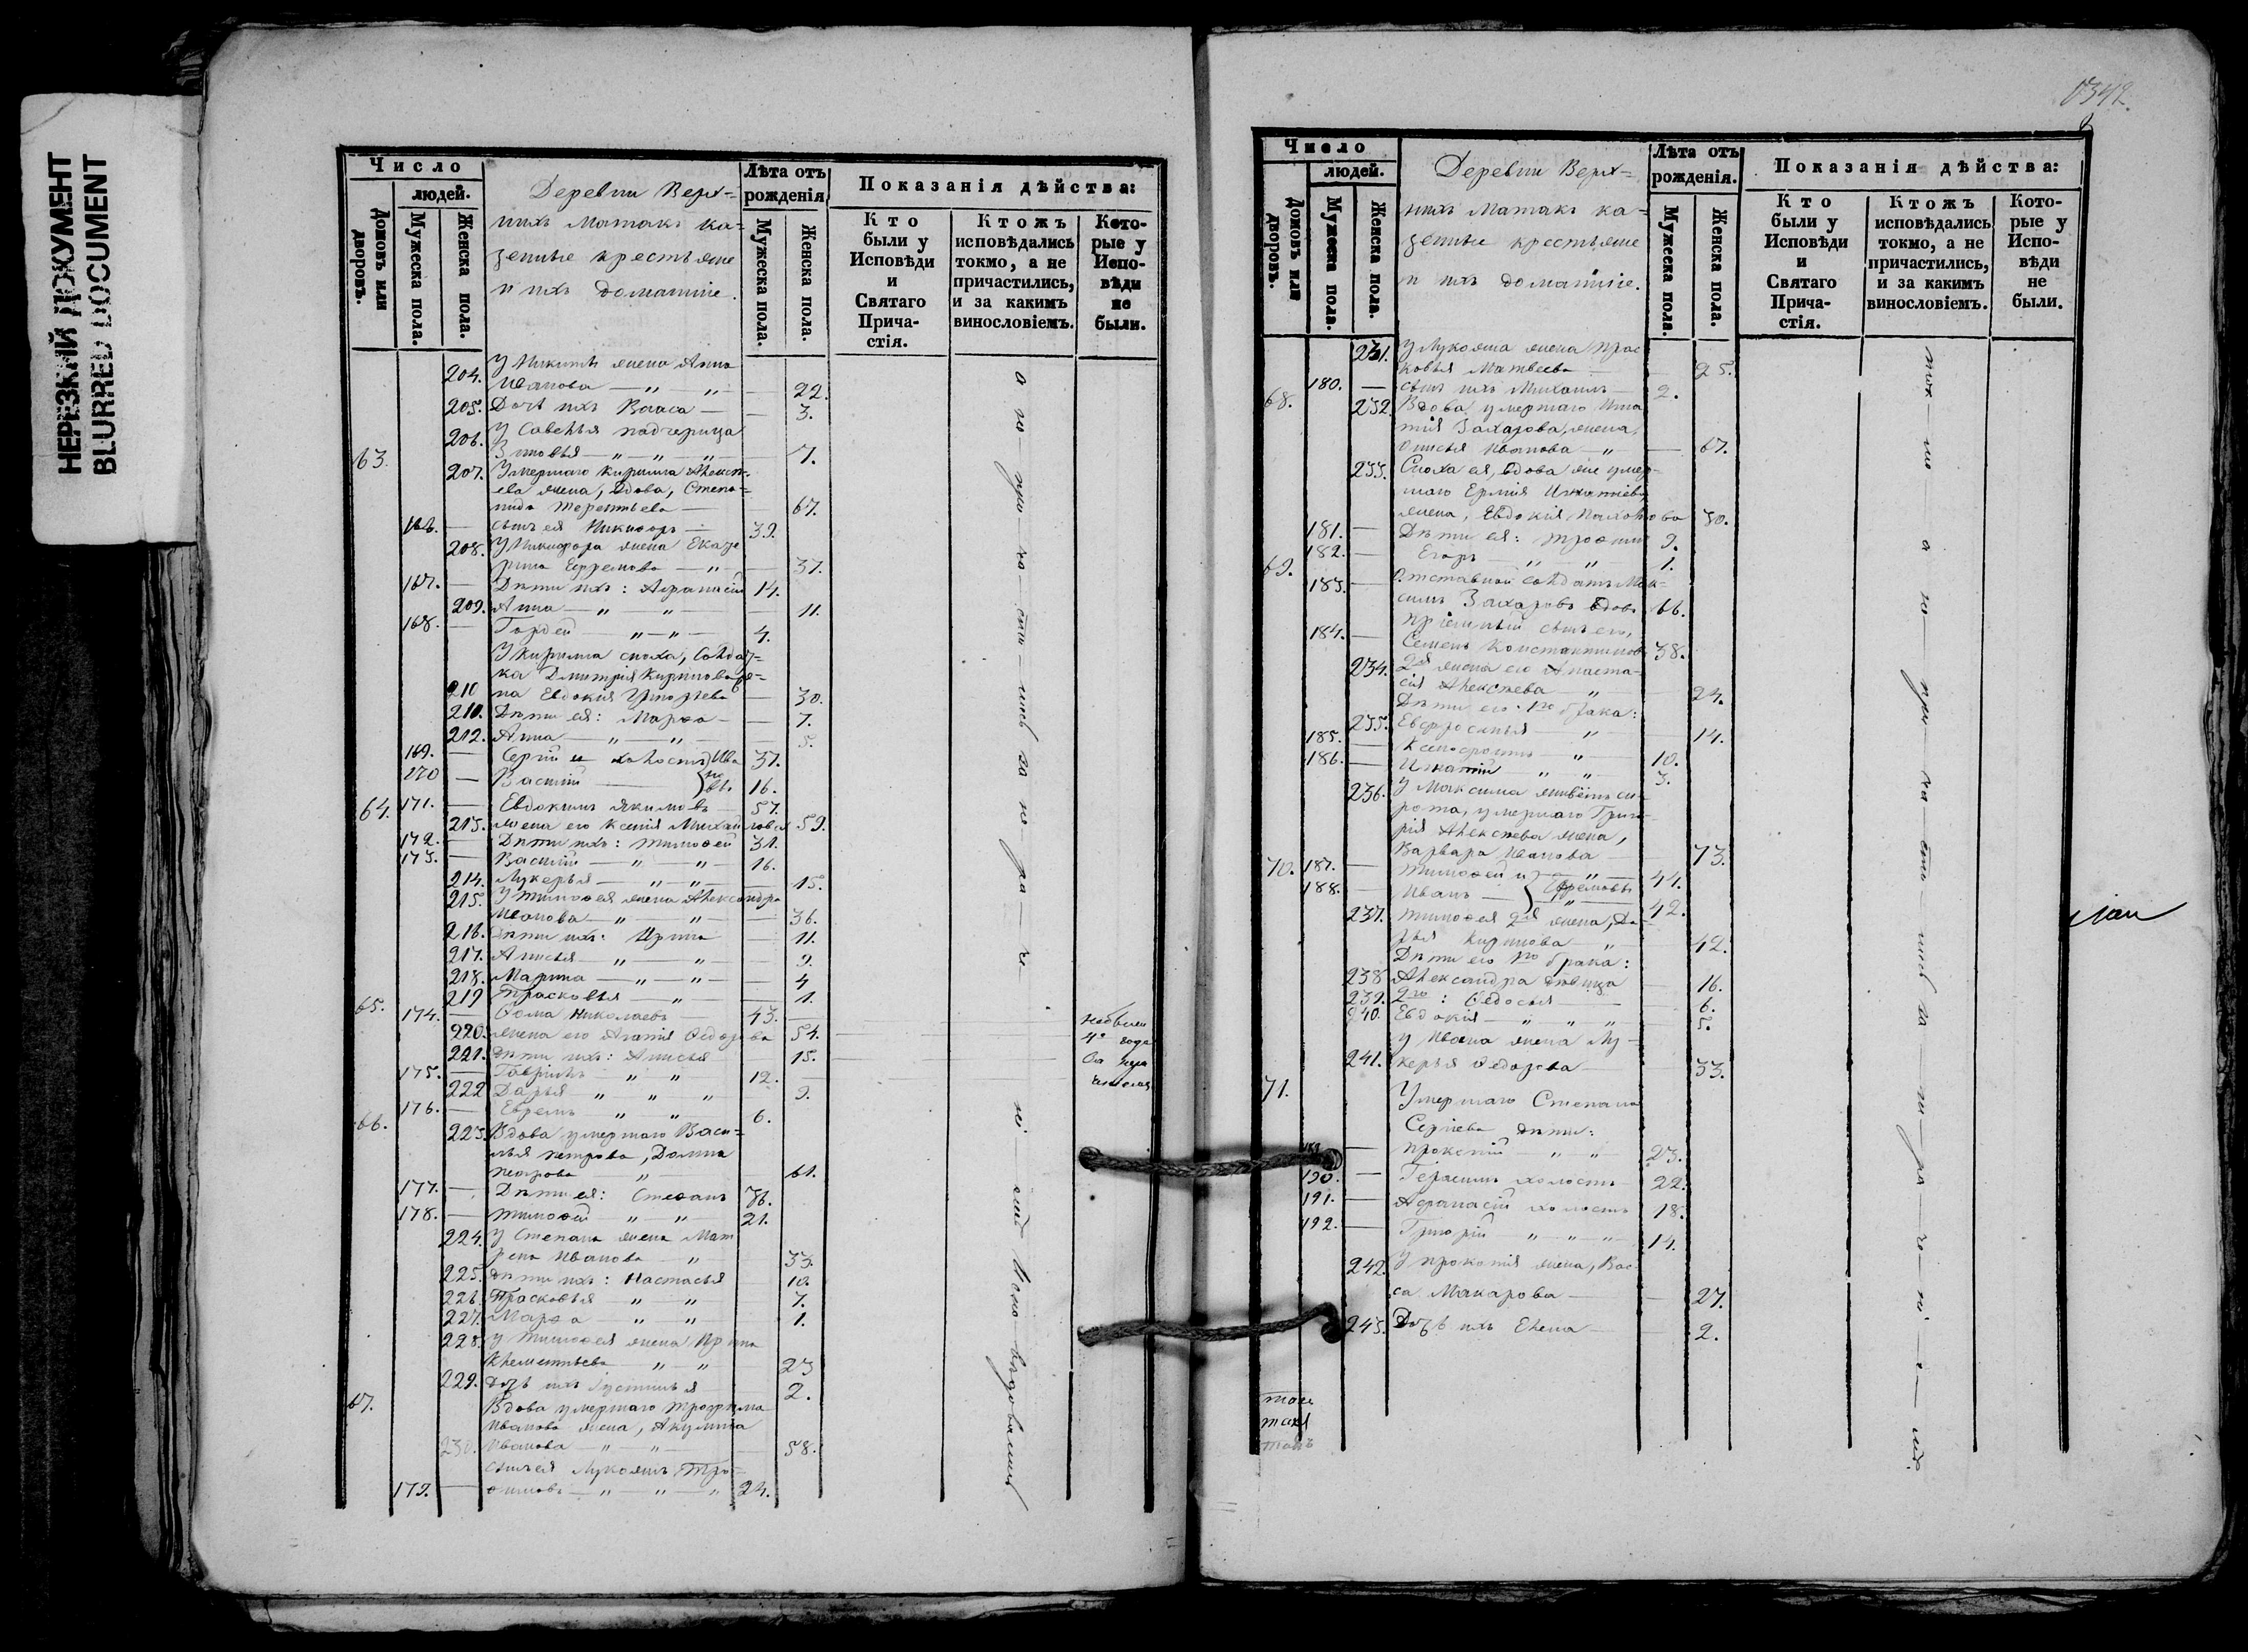 НЕРЕЗКИЙ ДОКУМЕНТ
BLURRED DOCUMENT
Число
людей.
Домовъ или дворовъ.
Мужеска пола.
Женска пола.
Деревни Верх=
нихъ Матакъ ка=
зенные крестьяне
и ихъ домашніе.
Лѣта отъ рожденія
Мужеска пола.
Женска пола.
Показанія дѣйства:
Кто были у Исповѣди и Святаго Прича-стія.
Ктожъ исповѣдались токмо, а не причастились, и за какимъ винословіемъ.
Кото-рые у Испо-вѣди не были.
204. У Никиты жена Анна
Иванова — „ „ — 22.
205. Дочь ихъ Васса — — 3.
206. У Савелья падчерица
Зиновья — „ — „ — „ 7.
63. 207. Умершаго Кирилла Алексѣ-
ева жена, вдова, Степа=
нида Терентьева — 67.
166. — сынъ ея Никифоръ — 39.
208. У Никифора жена Екате
рина Ефремова — „ — 37.
167. — Дѣти ихъ: Афанасій 14.
209. Анна — „ „ — 11.
168. — Гордей — „ — „ — 4.
У Кирилла сноха, солдат=
ка Дмитрія Кириллова же=
210 на Евдокія Григорьева — 30.
211. Дѣти ея: Марѳа — — 7.
212. Анна — „ — „ — 5.
169. — Сергій и холостъ Ива 37.
170 — Василій — но вы 16.
64. 171. — Евдокимъ Якимовъ — 57.
213. жена его Ксенія Михайловна 59.
172. — Дѣти ихъ: Тимоѳей 31.
173. — Василій — „ — „ — 16.
214. Лукерья — „ — „ — 15.
215. У Тимоѳея жена Александра
Иванова — „ — „ — 36.
216. Дѣти ихъ: Ирина — 11.
217. Анисья — „ — „ — 9.
218. Марина — „ — „ — 4
219 Прасковья — „ — 1.
65. 174. — Ѳома Николаевъ — 43.
220. жена его Агапія Ѳедорова 54.
221. Дѣти ихъ: Анисья 15.
175. — Гаврiилъ — „ „ 12.
222 Дарья — „ „ „ 9.
176. — Ефремъ „ „ 6.
66. 223. Вдова умершаго Васи=
лья Петрова, Домна
Петрова — „ — 61.
177. — Дѣти ея: Стефанъ 36.
178. — Тимоѳей „ — „ 21.
224. У Степана жена Мат
рена Иванова — „ 33.
225. Дѣти ихъ: Настасья 10.
226. Прасковья „ „ 7.
227. Марѳа „ „ 1.
228. У Тимоѳея жена Ирина
Клементьева „ — „ 23
229. Дочь ихъ Густинья 2.
67. Вдова умершаго Трофима
Иванова жена, Акулина
230. Иванова — „ — „ — 58.
сынъ ея Лукоянъ Тро=
179. — ѳимовъ — „ — „ — „ 24.
0342.
Число
людей.
Домовъ или дворовъ.
Мужеска пола.
Женска пола.
Деревни Верх=
нихъ Матакъ ка=
зенные крестьяне
и ихъ домашніе.
Лѣта отъ рожденія.
Мужеска пола.
Женска пола.
Показанія дѣйства:
Кто были у Исповѣди и Святаго Прича-стія.
Ктожъ исповѣдались токмо, а не причастились, и за какимъ винословіемъ.
Кото-рые у Испо-вѣди не были.
231. У Лукояна жена Прас
ковья Матвеева — 25.
180. — сынъ ихъ Михаилъ — 2.
68. 232. Вдова умершаго Игна
тія Захарова, жена,
Анисья Иванова — „ — 67.
233. Сноха ея, вдова же умер-
шаго Ермія Игнатіева
жена, Евдокія Пахомова 30.
181. — Дѣти ея: Трофимъ 9.
182. — Егоръ — „ „ 1.
69. 183. — Отставной солдатъ Мак=
симъ Захаровъ вдовъ 66.
184. — Пріемный сынъ его,
Семенъ Константиновъ 38.
234. 2я жена его Анаста-
сія Алексѣева — „ — 24.
Дѣти его 1го брака:
235. Евфросинья — „ 14.
185. — Ксенофонтъ — „ 10.
186. — Игнатій „ „ 3.
236. У Максима живетъ си-
рота, умершаго Григо-
рія Алексѣева жена,
Варвара Иванова 73.
70. 187. — Тимоѳей и „ 44.
188. — Иванъ Ефремовы 42.
237. Тимоѳея 2я жена, Да-
рья Кириллова — „ 42.
Дѣти его 1го брака:
238 Александра дѣвица 16.
239. 2го: Ѳедосья — 6.
240. Евдокія — „ „ „ 5.
У Ивана жена Лу-
241. керья Ѳедорова — 33.
71. Умершаго Степана
Сергѣева дѣти:
189 — Прокопій „ „ 23.
190. — Герасимъ холостъ 22.
191. — Афанасій холостъ 18.
192. — Григорій „ „ „ 14.
242. У Прокопія жена, Вас-
са Макарова — 27.
243. Дочь ихъ Елена — 2.